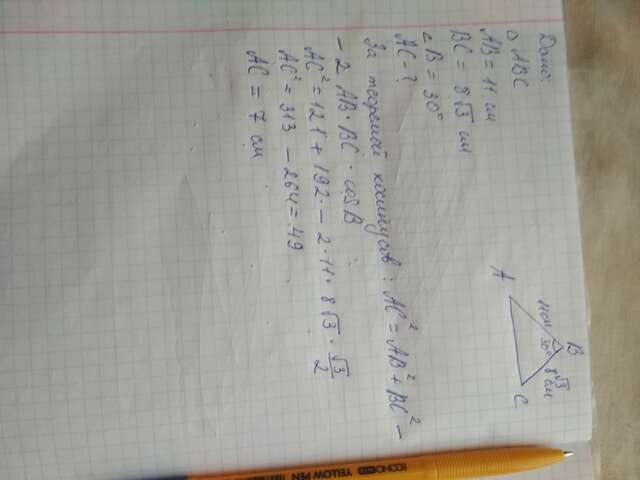 Дано:
△ ABC
AB = 11 см
BC = 8√3 см
∠ B = 30°
AC - ?
За теоремой косинусов: AC² = AB² + BC² -
- 2 AB · BC · cos B
AC² = 121 + 192 - 2 · 11 · 8√3 · √3/2
AC² = 313 - 264 = 49
AC = 7 см
B
11 см
30°
8√3 см
A
C
YELLOW PEN